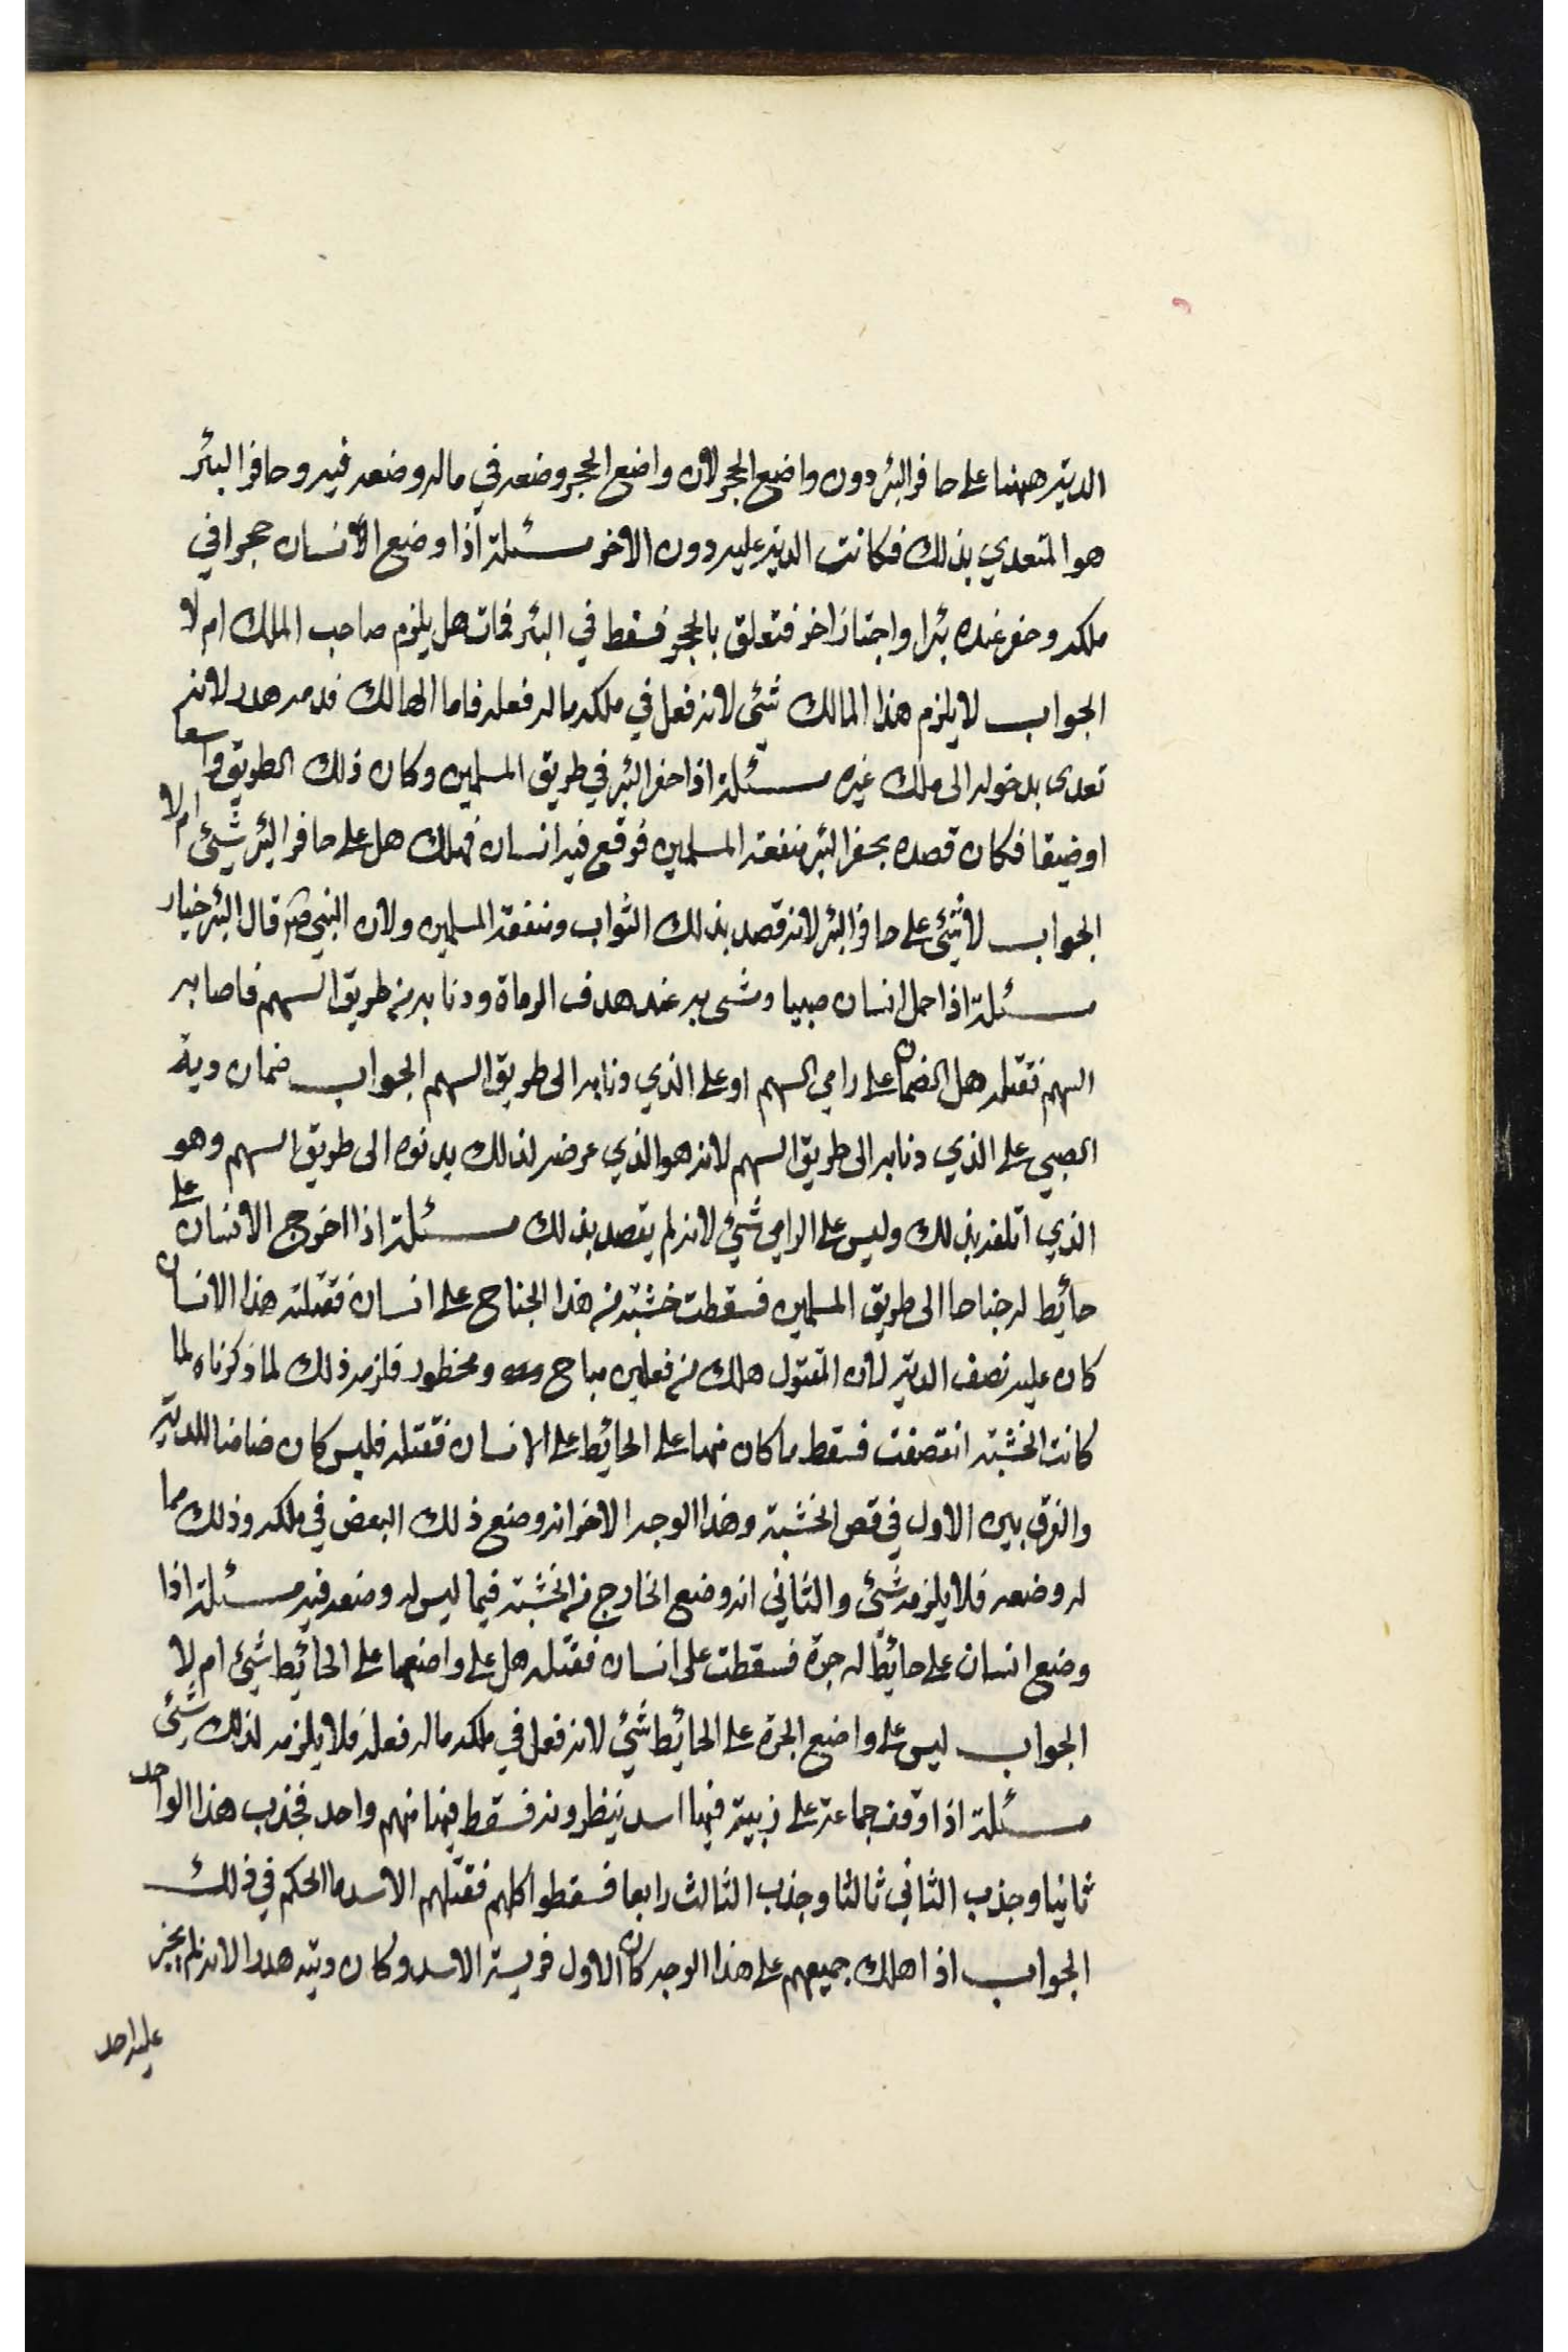 الدية ههنا على حافر البئر دون واضع الحجر لان واضع الحجر وضعه في ماله وضعه فيه وحافر البئر
هو المتعدي بذلك فكانت الدية عليه دون الاخر مسئلة اذا وضع الانسان حجرا في
ملكه وحفر عنده بئرا واجتاز اخر فتعلق بالحجر فسقط في البئر فمات هل يلزم صاحب الملك ام لا
الجواب لا يلزم هذا المالك شيئ لانه فعل في ملكه ماله فعله فاما الهالك فدمه هدر لانه
تعدى بدخوله الى ملك غيره مسئلة اذا حفر البئر في طريق المسلمين وكان ذلك الطريق واسعا
او ضيقا فكان قصده بحفر البئر منفعة المسلمين فوقع فيه انسان فهلك هل على حافر البئر شيئ ام لا
الجواب لا شيئ على حافر البئر لانه قصد بذلك الثواب ومنفعة المسلمين ولان النبي ص قال البئر خيار
مسئلة اذا حمل انسان صبيا ومشى به عند هدف الرماة ودنا به من طريق السهم فاصابه
السهم فقتله هل الضمان على رامي السهم او على الذي دنا به الى طريق السهم الجواب ضمان دية
الصبي على الذي دنا به الى طريق السهم لانه هو الذي عرضه لذلك بدنوه الى طريق السهم وهو
الذي اتلفه بذلك وليس على الرامي شيئ لانه لم يقصد بذلك مسئلة اذا اخرج الانسان على
حائط له جناحا الى طريق المسلمين فسقطت خشبة من هذا الجناح على انسان فقتلته هذا الانسان
كان عليه نصف الدية لان المقتول هلك من فعلين مباح ومحظور فلزمه ذلك لما ذكرناه لما
كانت الخشبة انقصفت فسقط ما كان منها على الحائط على الانسان فقتله فليس كان ضامنا للدية
والفرق بين الاول في قص الخشبة وهذا الوجه الاخر انه وضع ذلك البعض في ملكه وذلك مما
له وضعه فلا يلزمه شيئ والثاني انه وضع الخارج من الخشبة فيما ليس له وضعه فيه مسئلة اذا
وضع انسان على حائط له جرة فسقطت على انسان فقتله هل على واضعها على الحائط شيئ ام لا
الجواب ليس على واضع الجرة على الحائط شيئ لانه فعل في ملكه ماله فعله فلا يلزمه لذلك شيئ
مسئلة اذا وقف جماعة على زبية فيها اسد ينظرونه فسقط فيها منهم واحد فجذب هذا الواحد
ثانيا وجذب الثاني ثالثا وجذب الثالث رابعا فسقطوا كلهم فقتلهم الاسد ما الحكم في ذلك
الجواب اذا هلك جميعهم على هذا الوجه كان الاول فريسة الاسد وكان ديته هدرا لانه لم يجز
عليه احد